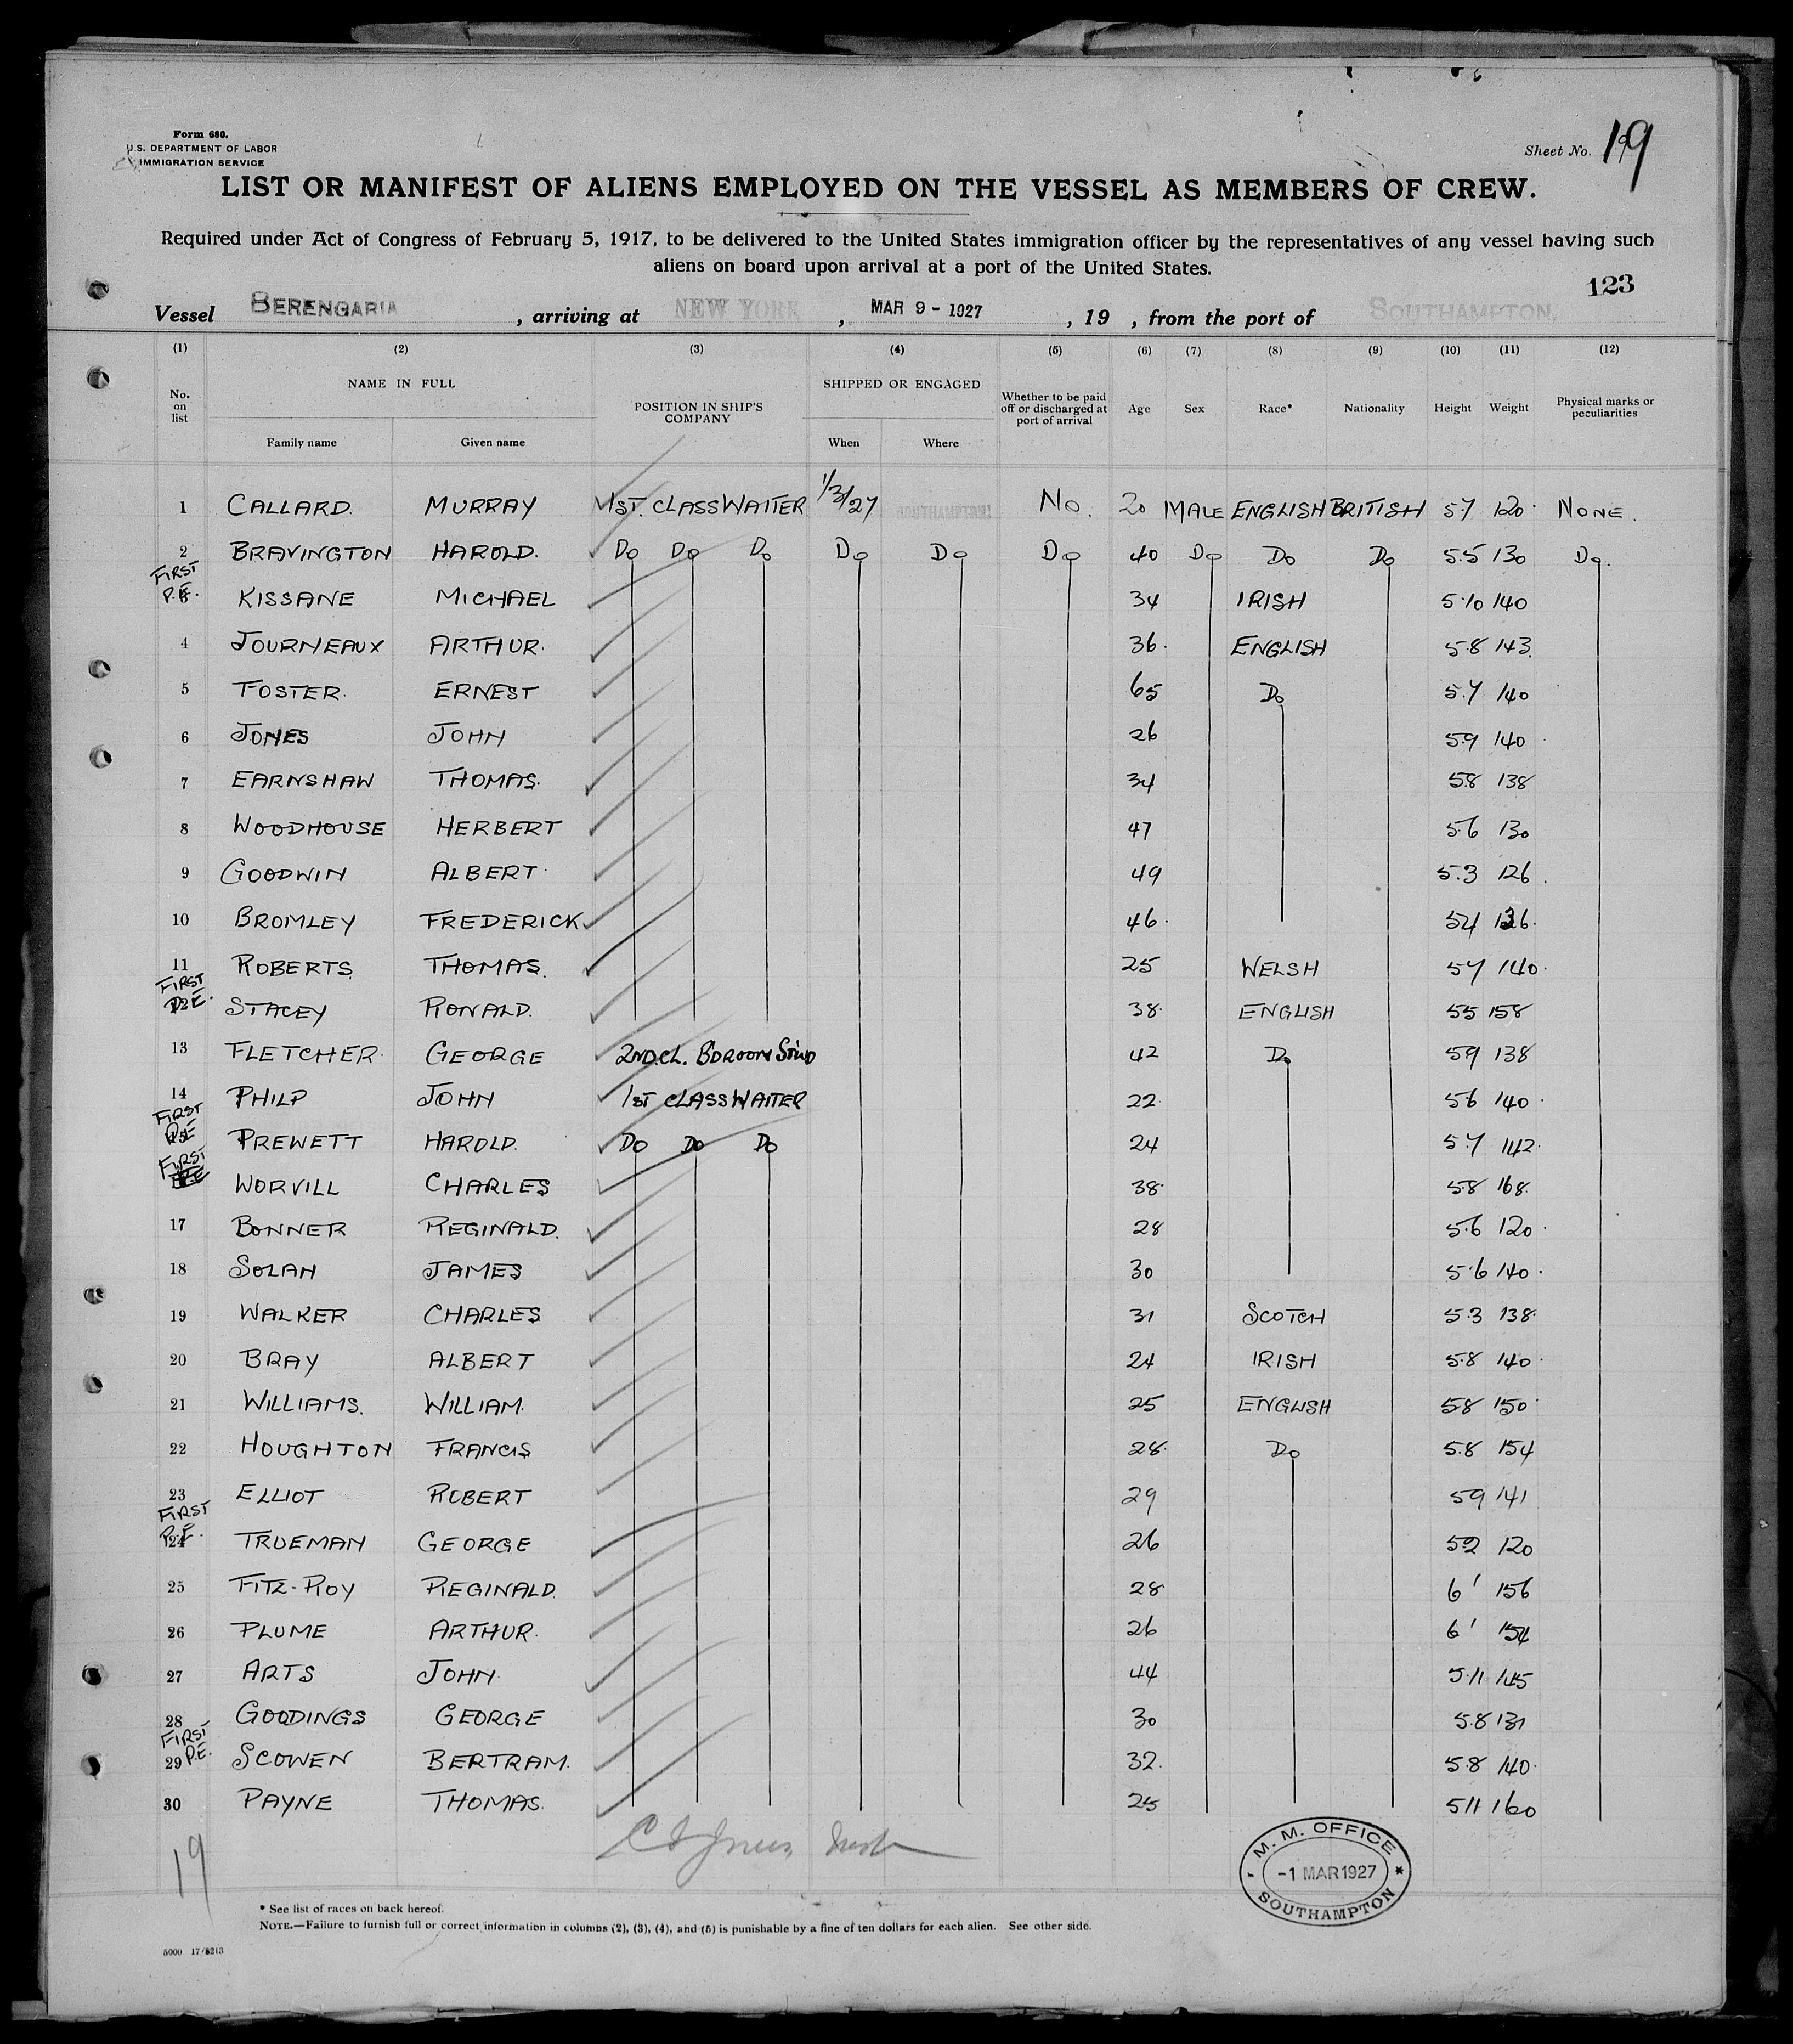 Form 680.
U.S. DEPARTMENT OF LABOR
IMMIGRATION SERVICE
Sheet No. 19
LIST OR MANIFEST OF ALIENS EMPLOYED ON THE VESSEL AS MEMBERS OF CREW.
Required under Act of Congress of February 5, 1917, to be delivered to the United States immigration officer by the representatives of any vessel having such
aliens on board upon arrival at a port of the United States.
123
Vessel BERENGARIA, arriving at NEW YORK, MAR 9 - 1927, 19 , from the port of SOUTHAMPTON.
(1) (2) (3) (4) (5) (6) (7) (8) (9) (10) (11) (12)
No. on list NAME IN FULL POSITION IN SHIP'S COMPANY SHIPPED OR ENGAGED Whether to be paid off or discharged at port of arrival Age Sex Race* Nationality Height Weight Physical marks or peculiarities
Family name Given name When Where
1 CALLARD. MURRAY 1ST. CLASS WAITER 1/3/27 SOUTHAMPTON No. 20 MALE ENGLISH BRITISH 5.7 120. NONE.
2 BRAVINGTON HAROLD. Do Do Do Do Do Do 40 Do Do Do 5.5 130 Do.
FIRST P.E. KISSANE MICHAEL 34 IRISH 5.10 140
4 JOURNEAUX ARTHUR. 36. ENGLISH 5.8 143.
5 FOSTER. ERNEST 65 Do 5.7 140
6 JONES JOHN 26 5.9 140
7 EARNSHAW THOMAS. 34 5.8 138
8 WOODHOUSE HERBERT 47 5.6 130
9 GOODWIN ALBERT 49 5.3 126.
10 BROMLEY FREDERICK 46. 5.4 136.
11 ROBERTS. THOMAS. 25 WELSH 5.7 140.
FIRST P.E. 12 STACEY RONALD. 38. ENGLISH 5.5 158
13 FLETCHER. GEORGE 2ND.CL. B'DROOM STWD 42 Do 5.9 138
14 PHILP JOHN 1ST CLASS WAITER 22. 5.6 140.
FIRST P.E. PREWETT HAROLD. Do Do Do 24 5.7 142.
FIRST P.E. WORVILL CHARLES 38. 5.8 168.
17 BONNER REGINALD. 28 5.6 120.
18 SOLAN JAMES 30 5.6 140.
19 WALKER CHARLES 31 SCOTCH 5.3 138.
20 BRAY ALBERT 24 IRISH 5.8 140.
21 WILLIAMS. WILLIAM. 25 ENGLISH 5.8 150
22 HOUGHTON FRANCIS 28. Do 5.8 154
23 ELLIOT ROBERT 29 5.9 141
FIRST P.E. 24 TRUEMAN GEORGE 26 5.2 120
25 FITZ-ROY REGINALD. 28 6' 156
26 PLUME ARTHUR. 26 6' 154
27 ARTS JOHN. 44 5.11 145
28 GOODINGS GEORGE 30 5.8 131
FIRST P.E. 29 SCOWEN BERTRAM. 32. 5.8 140.
30 PAYNE THOMAS. 25 5.11 160
19
M. M. OFFICE
-1 MAR 1927
SOUTHAMPTON
* See list of races on back hereof.
NOTE.—Failure to furnish full or correct information in columns (2), (3), (4), and (5) is punishable by a fine of ten dollars for each alien. See other side.
5000 17/5213